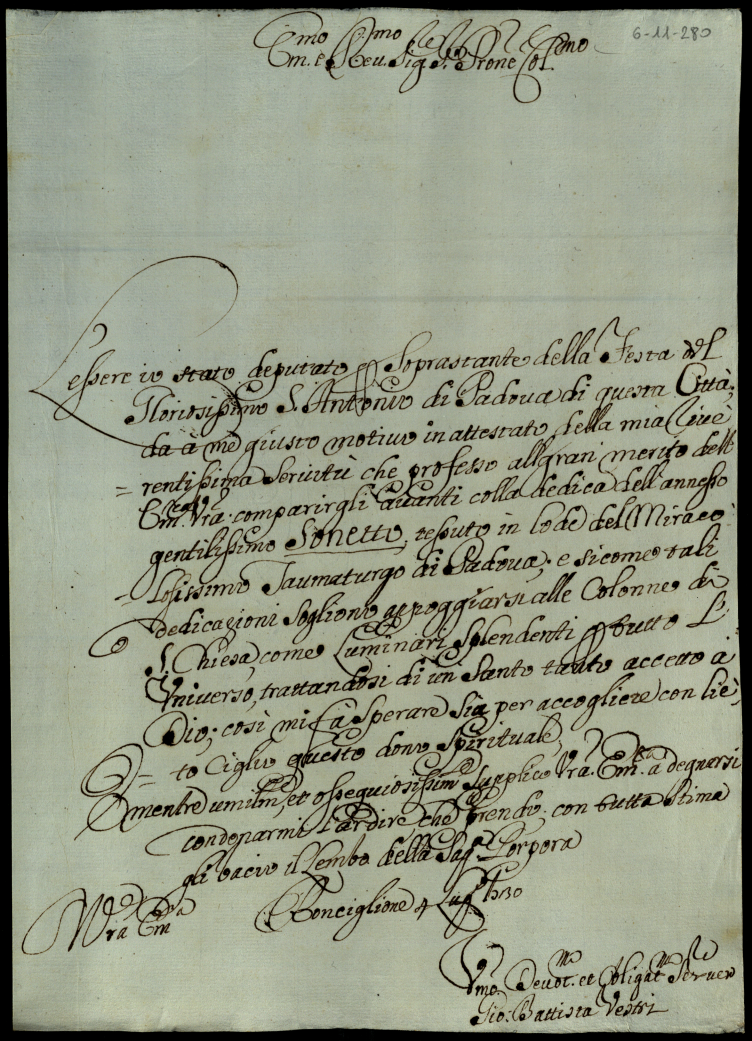 6-11-280
Em.mo e Rev.mo Sig.re Sig.re Prone Col.mo
L'essere io stato deputato Soprastante della Festa del
Gloriosissimo S. Antonio di Padova di questa Città,
da à me giusto motivo in attestato della mia rive=
=rentissima servitù che professo all gran merito dell
Em.za Vra comparirgli avanti colla dedica dell'annesso
gentilissimo Sonetto, tessuto in lode del Miraco=
=losissimo Taumaturgo di Padova, e sicome tali
dedicazioni sogliono appoggiarsi alle Colonne di
S. Chiesa, come Luminari splendenti per tutto l'
Universo, trattandosi di un Santo tanto accetto a
Dio; così mi fà sperare sia per accogliere con liè=
=to Ciglio questo dono Spirituale,
mentre umilm.e, et ossequiosissim.e supplico Vra. Em.za a degnarsi
condonarmi l'ardire che prendo, con tutta stima
gli bacio il Lembo della Sag.ra Porpora
Vra Em.za
Ronciglione 4 Lug.o 1730
Vmo. Devot.mo et Obligat.mo Servre
Gio: Battista Vestri